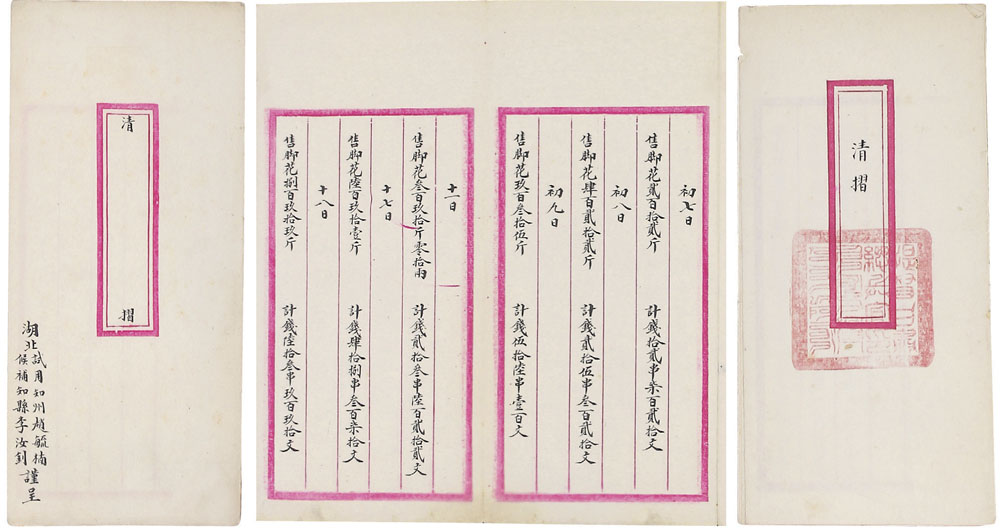 清摺
湖北試用知州趙毓楠
候補知縣李汝釗
謹呈
初七日
售脚花貳百拾貳斤 計錢拾貳串柒百貳拾文
初八日
售脚花肆百貳拾貳斤 計錢貳拾伍串叁百貳拾文
初九日
售脚花玖百叁拾伍斤 計錢伍拾陸串壹百文
十一日
售脚花叁百玖拾斤零拾兩 計錢貳拾叁串陸百貳拾貳文
十七日
售脚花陸百玖拾壹斤 計錢肆拾捌串叁百柒拾文
十八日
售脚花捌百玖拾玖斤 計錢陸拾叁串玖百玖拾文
清摺